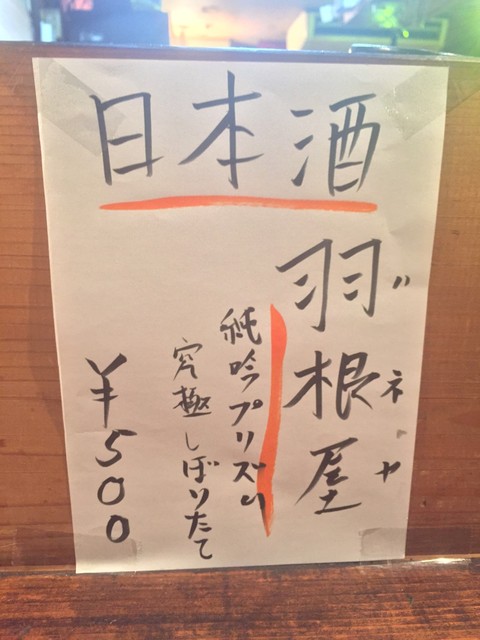 日本酒
羽根屋
ハネヤ
純吟プリズム
究極しぼりたて
¥500